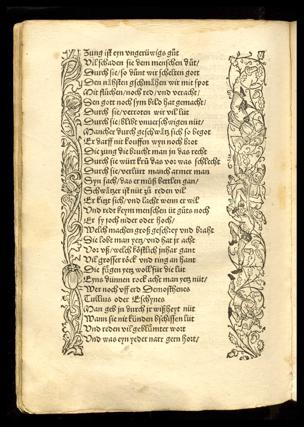 Zung ist eyn vngerüwigs gůt
Vil schaden sie dem menschen důt/
Durch sie/so důnt wir schelten gott
Den nähsten gschmähen wir mit spot
Mit flůchen/noch red/vnd veracht/
Den gott noch sym bild hat gemacht/
Durch sie/verroten wir vil lüt
Durch sie/blibt vnuerschwigen nüt/
Mancher durch geschwätz sich so begot
Er darff nit kouffen wyn noch brot
Die zung die brucht man jn das recht
Durch sie würt krum das vor was schlecht
Durch sie/verlürt manch armer man
Syn sach/das er můß bettlen gan/
Schwätzer ist nüt zů reden vil
Er kutzt sich/vnd lacht wenn er wil
Vnd redt keym menschen üt gůts noch
Er sy joch nider oder hoch/
Welch machen groß geschrey vnd bracht
Die lobt man yetz/vnd hat jr acht
Vor vß/welch köstlich jnhar gant
Mit grosser röck vnd ring an hant
Die fügen yetz woll für die lüt
Eyns dünnen rock acht man yetz nüt/
Wer noch vff erd Demosthenes
Tullius oder Eschynes
Man geb jn durch jr wißheyt nüt
Wann sie nit künden bschissen lüt
Vnd reden vil geblümter wort
Vnd was eyn yeder narr gern hort/